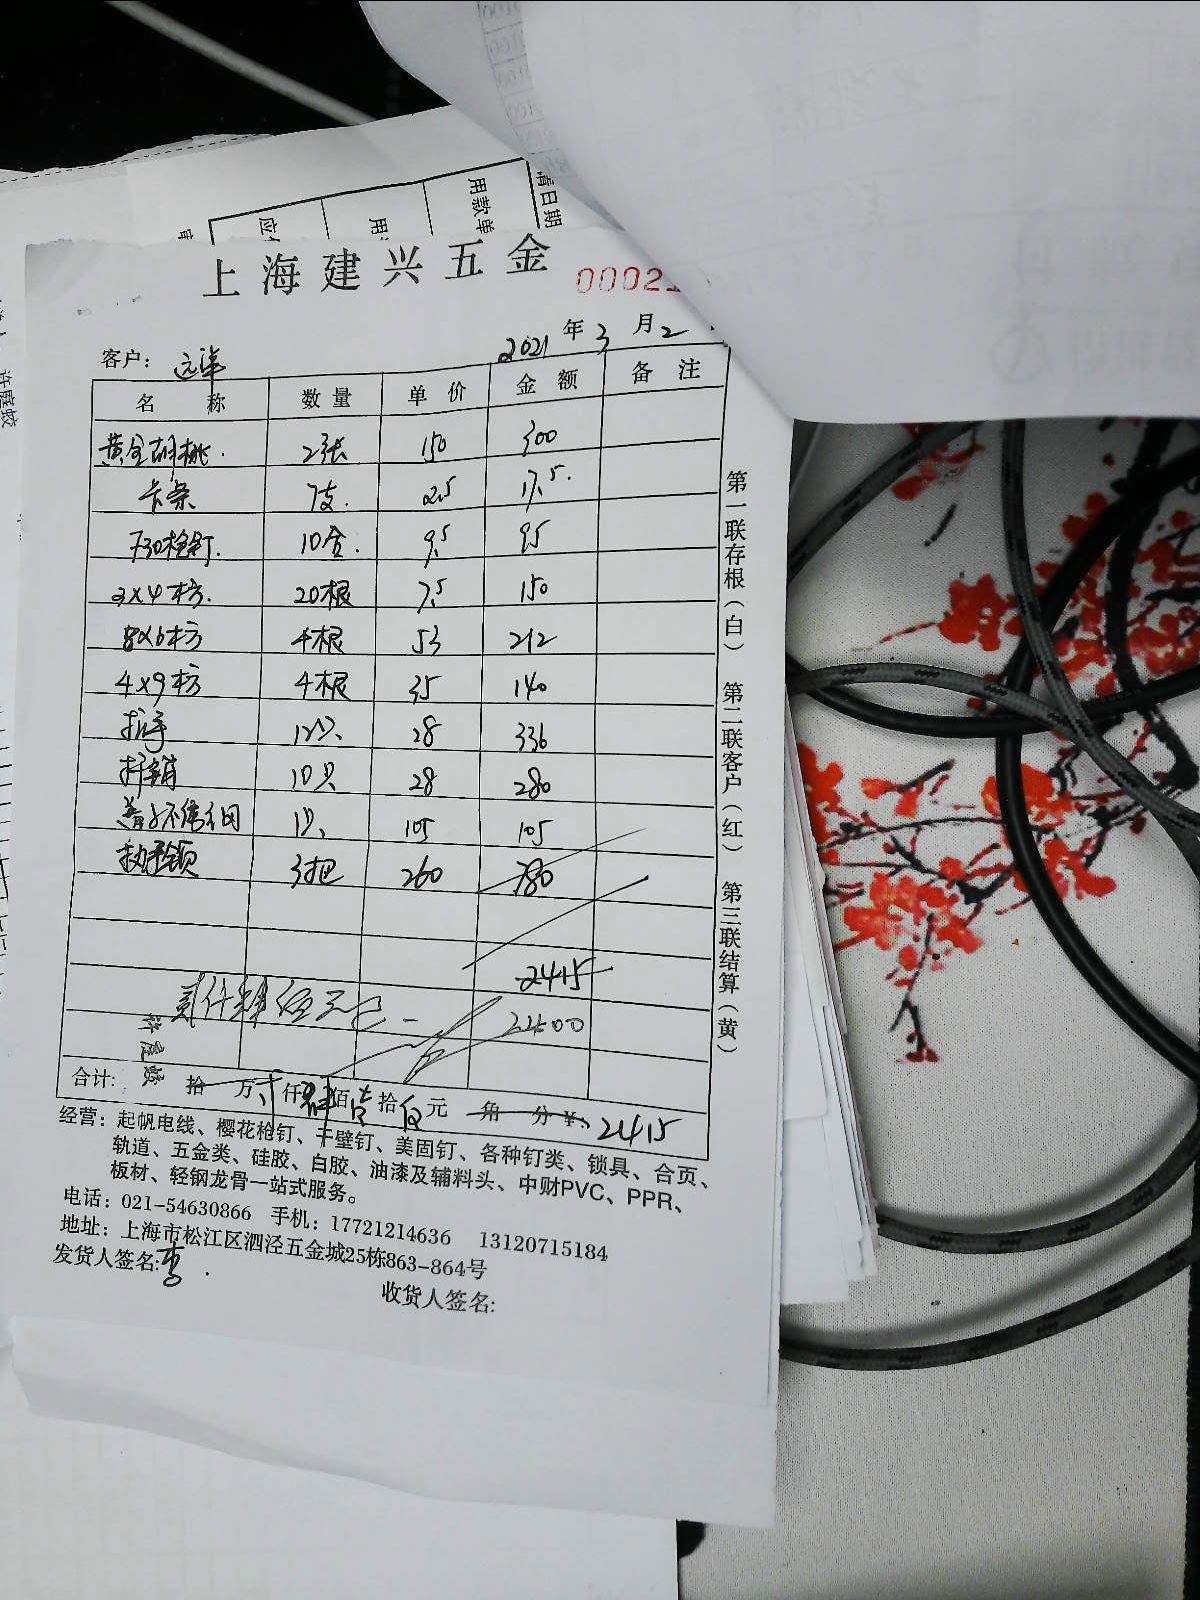 用款单
上海建兴五金
00021
客户： 远华 2021 年 3 月 2
名 称 数 量 单 价 金 额 备 注
黄金胡桃. 2张 150 300
卡条 7支. 2.5 17.5.
T30枪钉. 10盒. 9.5 95
3×4木方. 20根 7.5 150
8×6木方 4根 53 212
4×9木方 4根 35 140
拉手 12只 28 336
插销 10只 28 280
1只 105 105
执手锁 3把 260 780
2415
贰仟肆佰元 2400
许庭蛟
合计: 拾 万 贰 仟 肆 佰 壹 拾 伍 元 角 分 ¥: 2415
经营：起帆电线、樱花枪钉、干壁钉、美固钉、各种钉类、锁具、合页、
轨道、五金类、硅胶、白胶、油漆及辅料头、中财PVC、PPR、
板材、轻钢龙骨一站式服务。
电话：021-54630866 手机：17721214636 13120715184
地址：上海市松江区泗泾五金城25栋863-864号
发货人签名:李.
收货人签名:
第一联存根(白) 第二联客户(红) 第三联结算(黄)
许庭蛟